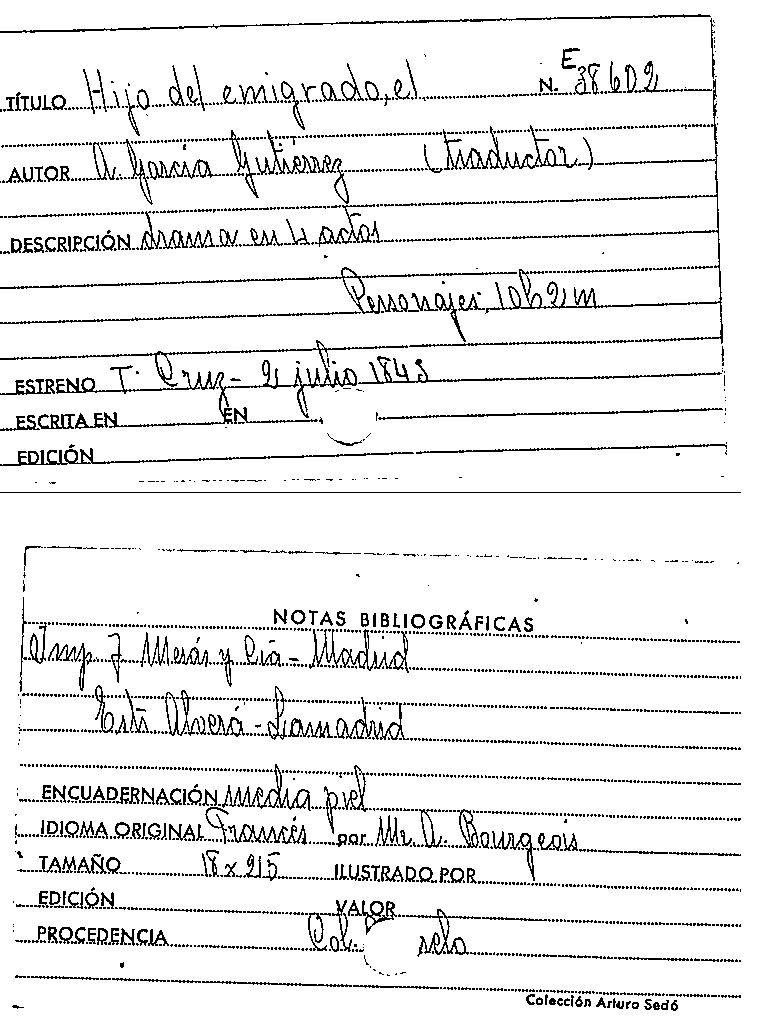 TÍTULO Hijo del emigrado, el N. E 38602
AUTOR A. García Gutiérrez (traductor)
DESCRIPCIÓN drama en 4 actos
Personajes, 10h 2m
ESTRENO T. Cruz - 2 julio 1843
ESCRITA EN EN
EDICIÓN
NOTAS BIBLIOGRÁFICAS
Imp. J. Merás y Cía - Madrid
Alverá - Lamadrid
ENCUADERNACIÓN media piel
IDIOMA ORIGINAL Francés por Mr. A. Bourgeois
TAMAÑO 18 x 215 ILUSTRADO POR
EDICIÓN VALOR
PROCEDENCIA Col.
Colección Arturo Sedó